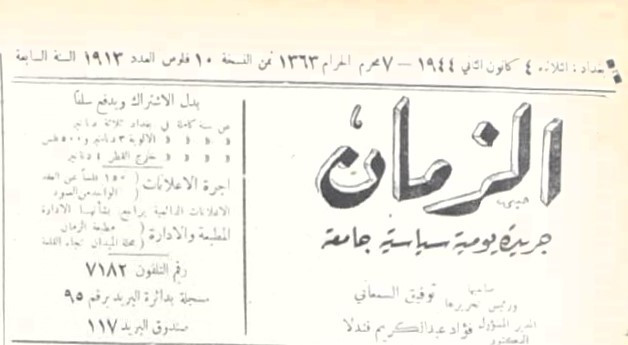 بغداد : الثلاثاء ٤ كانون الثاني ١٩٤٤ — ٧ محرم الحرام ١٣٦٣ ثمن النسخة ١٠ فلوس العدد ١٩١٣ السنة السابعة
الزمان
جريدة يومية سياسية جامعة
صاحبها
ورئيس تحريرها توفيق السمعاني
المدير المسؤول فؤاد عبدالكريم قندلا
بدل الاشتراك ويدفع سلفا
عن سنة كاملة في بغداد ثلاثة دنانير
« « « « الالوية ٣ دنانير و٥٠٠ فلس
« « « « خارج القطر ٤ دنانير
اجرة الاعلانات ( ١٥٠ فلسا عن العقد
الواحد من العمود
الاعلانات الدائمية يراجع بشأنها الادارة
المطبعة والادارة ( مطبعة الزمان
محلة الميدان تجاه القلعة
رقم التلفون ٧١٨٢
مسجلة بدائرة البريد برقم ٩٥
صندوق البريد ١١٧